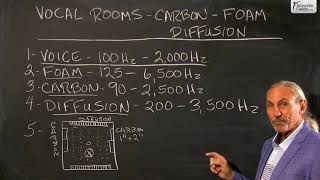 Acoustic Fields
VOCAL ROOMS - CARBON - FOAM
DIFFUSION
1- VOICE - 100Hz - 2,000Hz
2- FOAM - 125 - 6,500Hz
3- CARBON - 90 - 2,500Hz
4- DIFFUSION - 200 - 3,500Hz
5-
DIFFUSION
CARBON
CARBON
1"+2"